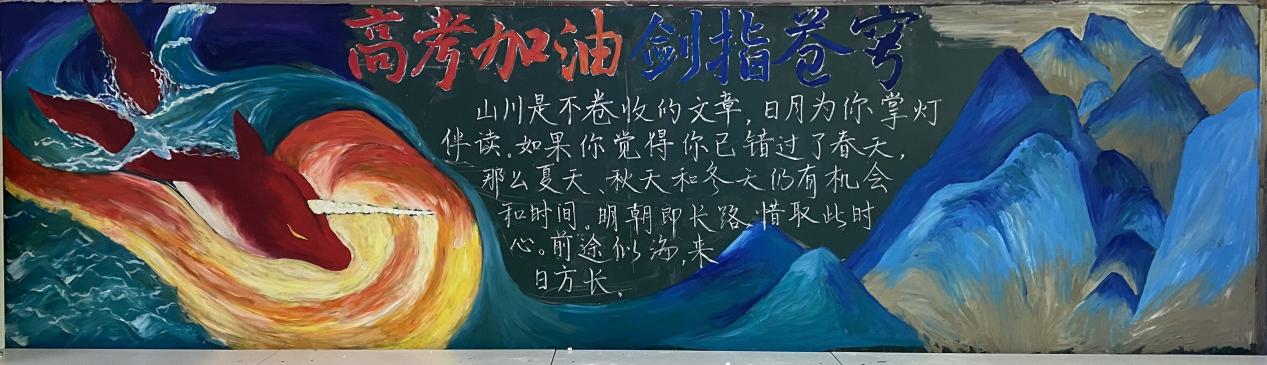 高考加油 剑指苍穹
山川是不卷收的文章，日月为你掌灯
伴读。如果你觉得你已错过了春天，
那么夏天、秋天和冬天仍有机会
和时间。明朝即长路，惜取此时
心。前途似海，来
日方长。